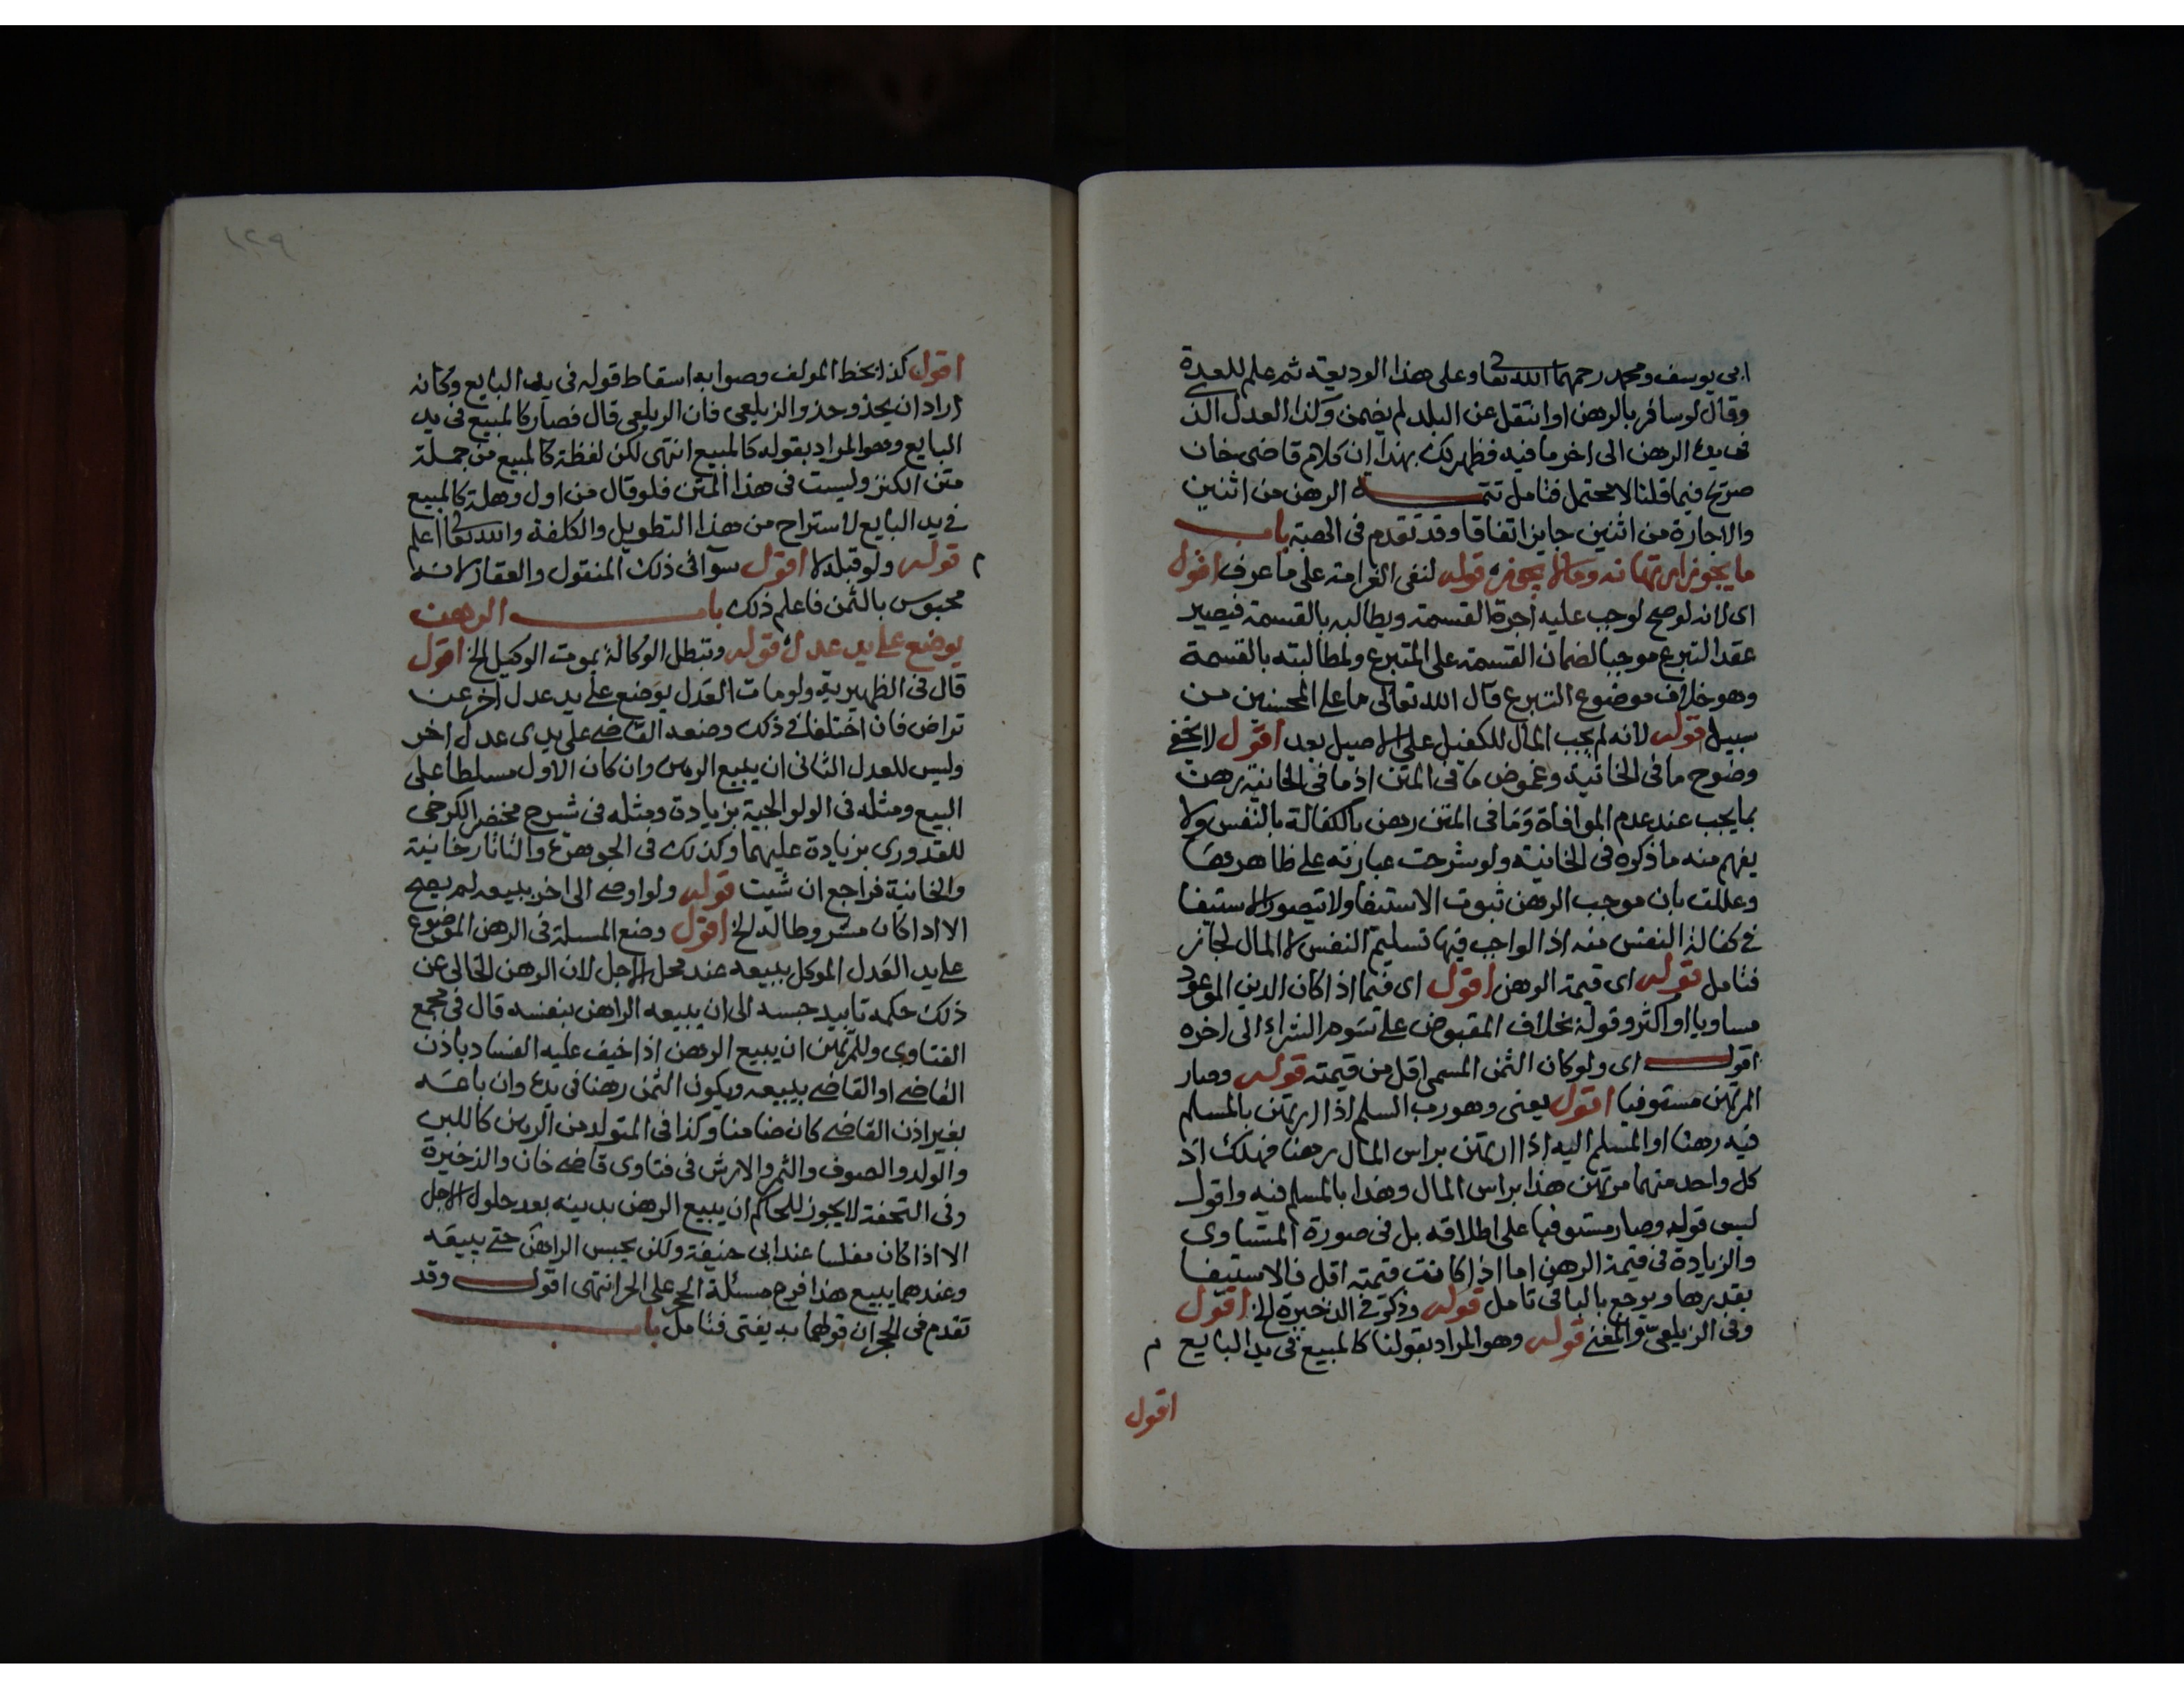 ابي يوسف ومحمد رحمهما الله تعا وعلى هذا الوديعة ثم علم للعدة
وقال لو سافر بالرهن او انتقل عن البلد لم يضمن وكذا العدل الذي
في يده الرهن الى اخر ما فيه فظهر لك بهذا ان كلام قاضى خان
صريح فيما قلنا لا محتمل فتامل تتمه الرهن من اثنين
والاجارة من اثنين جايز اتفاقا وقد تقدم فى الهبة باب
ما يجوز ارتهانه وما لا يجوز قوله لنفى الغرامة على ما عرف اقول
اى لانه لو صح لوجب عليه اجرة القسمة ويطالبه بالقسمة فيصير
عقد التبرع موجبا لضمان القسمة على المتبرع ولمطالبته بالقسمة
وهو خلاف موضوع التبرع قال الله تعالى ما على المحسنين من
سبيل قوله لانه لم يجب المال للكفيل على الاصيل بعد اقول لا يخفى
وضوح ما فى الخانية وغموض ما فى المتن اذ ما فى الخانية رهن
بما يجب عند عدم الموافاة وما فى المتن رهن بالكفالة بالنفس ولا
يفهم منه ما ذكره فى الخانية ولو شرحت عبارته على ظاهرها
وعللت بان موجب الرهن ثبوت الاستيفا ولا يتصور الاستيفا
فى كفالة النفس منه اذ الواجب فيها تسليم النفس لا المال لجاز
فتامل قوله اى قيمة الرهن اقول اى فيما اذا كان الدين الموعود
مساويا او اكثر وقوله بخلاف المقبوض على سوم الشراء الى اخره
اقول اى ولو كان الثمن المسمى اقل من قيمته قوله وصار
المرتهن مستوفيا اقول يعنى وهو رب السلم اذا ارتهن بالمسلم
فيه رهنا او المسلم اليه اذا ارتهن براس المال رهنا فهلك اذ
كل واحد منهما مرتهن هذا براس المال وهذا بالمسلم فيه واقول
ليس قوله وصار مستوفيا على اطلاقه بل فى صورة المتساوى
والزيادة فى قيمة الرهن اما اذا كانت قيمته اقل فالاستيفا
بقدرها ويرجع بالباقى تامل قوله وذكر فى الذخيرة الخ اقول
وفى الزيلعى والمغنى قوله وهو المراد بقولنا كالمبيع فى يد البايع م
اقول
١٢٩
اقول كذا بخط المولف وصوابه اسقاط قوله فى يد البايع وكانه
اراد ان يحذو حذو الزيلعى فان الزيلعى قال فصار كالمبيع فى يد
البايع وهو المراد بقوله كالمبيع انتهى لكن لفظة كالمبيع من جملة
متن الكنز وليست فى هذا المتن فلو قال من اول وهلة كالمبيع
فى يد البايع لاستراح من هذا التطويل والكلفة والله تعا اعلم
م قوله ولو قبله لا اقول سوآ فى ذلك المنقول والعقار لانه
محبوس بالثمن فاعلم ذلك باب الرهن
يوضع على يد عدل قوله وتبطل الوكالة بموت الوكيل الخ اقول
قال فى الظهيرية ولو مات العدل يوضع على يد عدل اخر عن
تراض فان اختلفا فى ذلك وضعه القاضى على يدى عدل اخر
وليس للعدل الثانى ان يبيع الرهن وان كان الاول مسلطا على
البيع ومثله فى الولوالجية بزيادة ومثله فى شرح مختصر الكرخى
للقدورى بزيادة عليهما وكذلك فى الجوهرة والتاتارخانية
والخانية فراجع ان شيت قوله ولو اوصى الى اخر ببيعه لم يصح
الا اذا كان مشروطا له الخ اقول وضع المسلة فى الرهن الموضوع
على يد العدل الموكل ببيعه عند محل الاجل لان الرهن الخالى عن
ذلك حكمه تابيد حبسه الى ان يبيعه الراهن بنفسه قال فى مجمع
الفتاوى وللمرتهن ان يبيع الرهن اذا خيف عليه الفساد باذن
القاضى او القاضى يبيعه ويكون الثمن رهنا فى يده وان باعه
بغير اذن القاضى كان ضامنا وكذا فى المتولد من الرهن كاللبن
والولد والصوف والثمر والارش فى فتاوى قاضى خان والذخيرة
وفى التحفة لا يجوز للحاكم ان يبيع الرهن بدينه بعد حلول الاجل
الا اذا كان مفلسا عند ابى حنيفة ولكن يحبس الراهن حتى يبيعه
وعندهما يبيع هذا فرع مسئلة الحجر على الحر انتهى اقول وقد
تقدم فى الحجر ان قولهما به يفتى فتامل باب